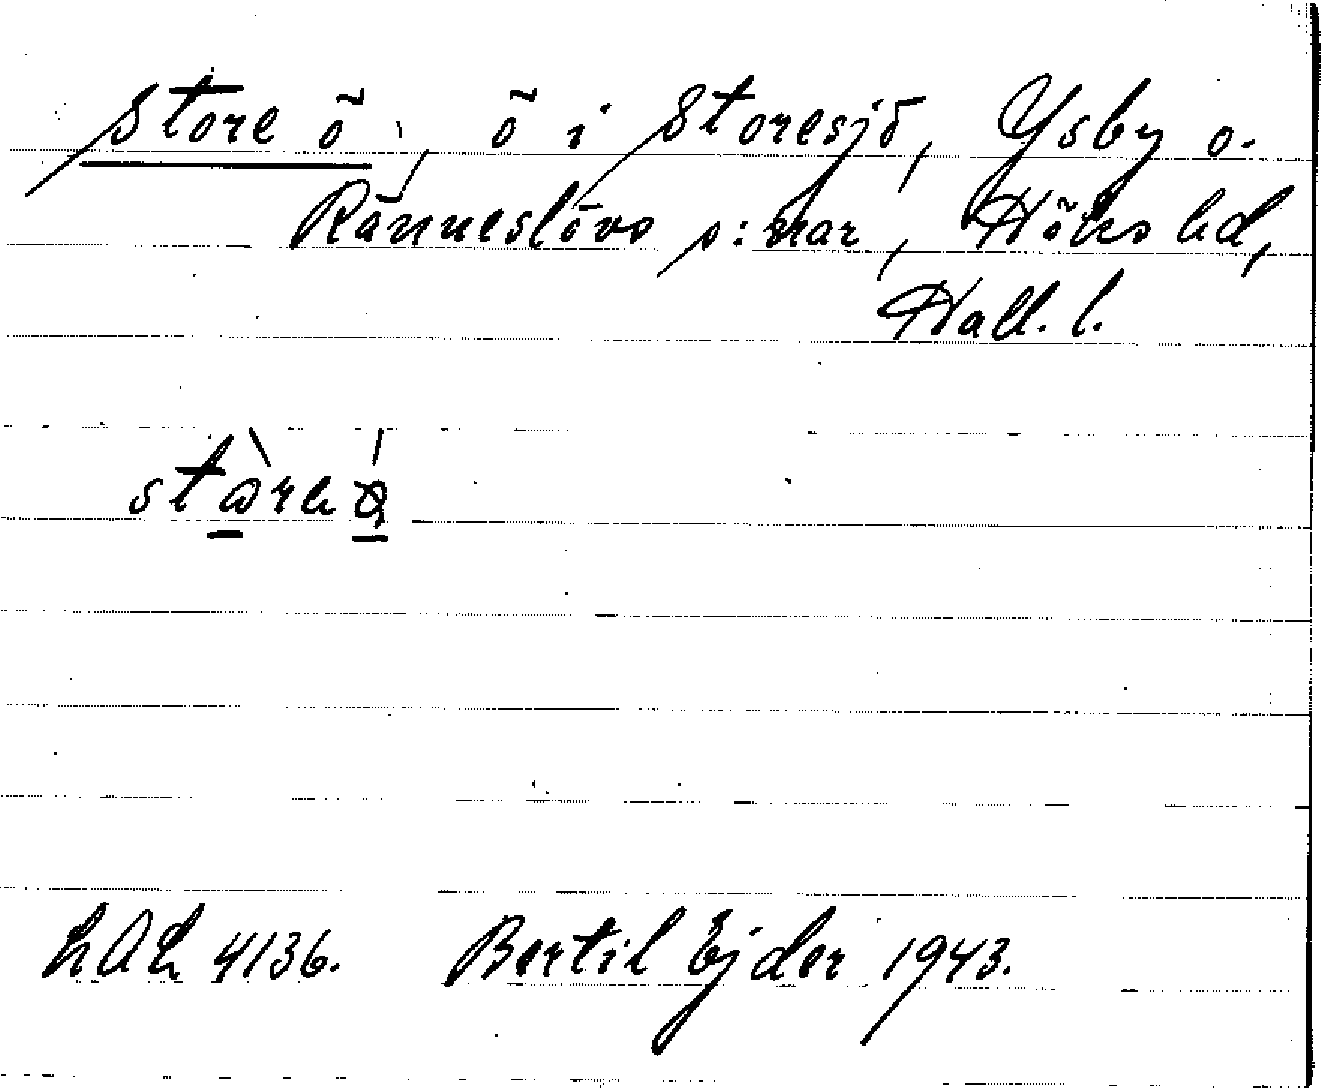 Store ö, ö i Storesjö, Ysby o.
Ränneslövs s:nar, Höks hd,
Hall. l.
LAL 4136. Bertil Ejder 1943.